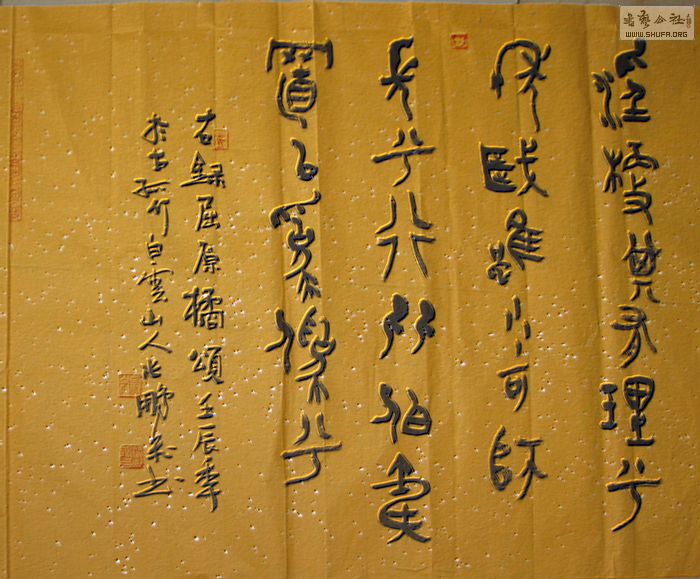 淫梗其有理兮
年歲雖少可師
長兮行比伯夷
置以為像兮
右錄屈原橘頌壬辰年
於古孤竹白雲山人鵬書
書藝公社
WWW.SHUFA.ORG